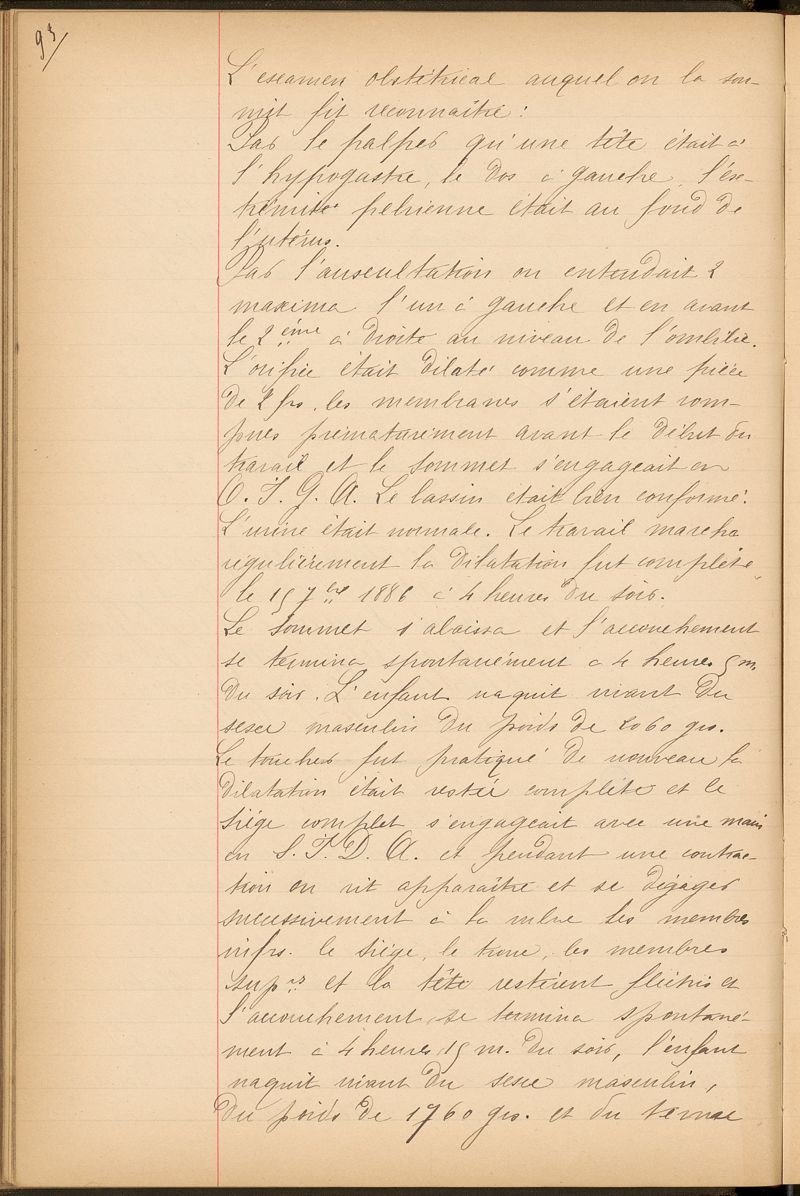 93
L'examen obstétrical auquel on la sou-
mit fit reconnaître :
Par le palper qu'une tête était à
l'hypogastre, le dos à gauche, l'ex-
trémité pelvienne était au fond de
l'utérus.
Par l'auscultation on entendait 2
maxima l'un à gauche et en avant
le 2ème à droite au niveau de l'ombilic.
L'orifice était dilaté comme une pièce
de 2 frs, les membranes s'étaient rom-
pues prématurément avant le début du
travail et le sommet s'engageait en
O. I. G. A. Le bassin était bien conformé.
L'urine était normale. Le travail marcha
régulièrement la dilatation fut complète
le 15 7bre 1886 à 4 heures du soir.
Le sommet s'abaissa et l'accouchement
se termina spontanément à 4 heures 5 m.
du soir. L'enfant naquit vivant du
sexe masculin du poids de 2060 grs.
Le toucher fut pratiqué de nouveau la
dilatation était restée complète et le
siège complet s'engageait avec une main
en S. I. D. A. et pendant une contrac-
tion on vit apparaître et se dégager
successivement à la vulve les membres
infrs. le siège, le tronc, les membres
suprs et la tête restèrent fléchis et
l'accouchement se termina spontané-
ment à 4 heures 15 m. du soir, l'enfant
naquit vivant du sexe masculin,
du poids de 1760 grs. et du terme